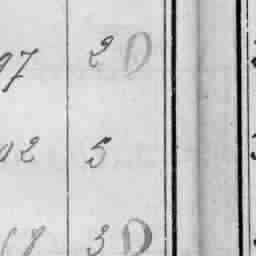 97 2 D
02 5
68 3 D